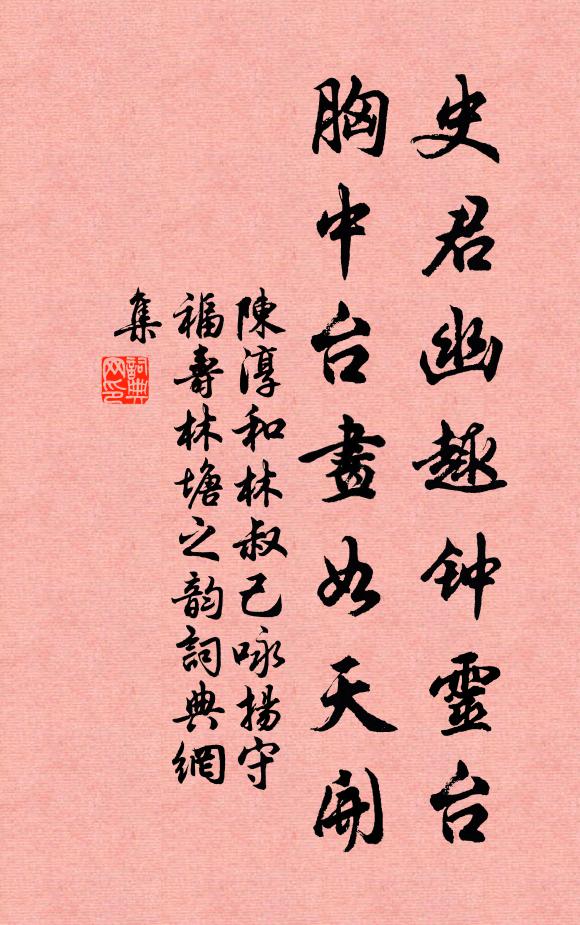 史君幽趣钟靈台
胸中台畫如天開
陳淳和林叔己咏揚守
福壽林塘之韵詞典網
集
詞典
网印